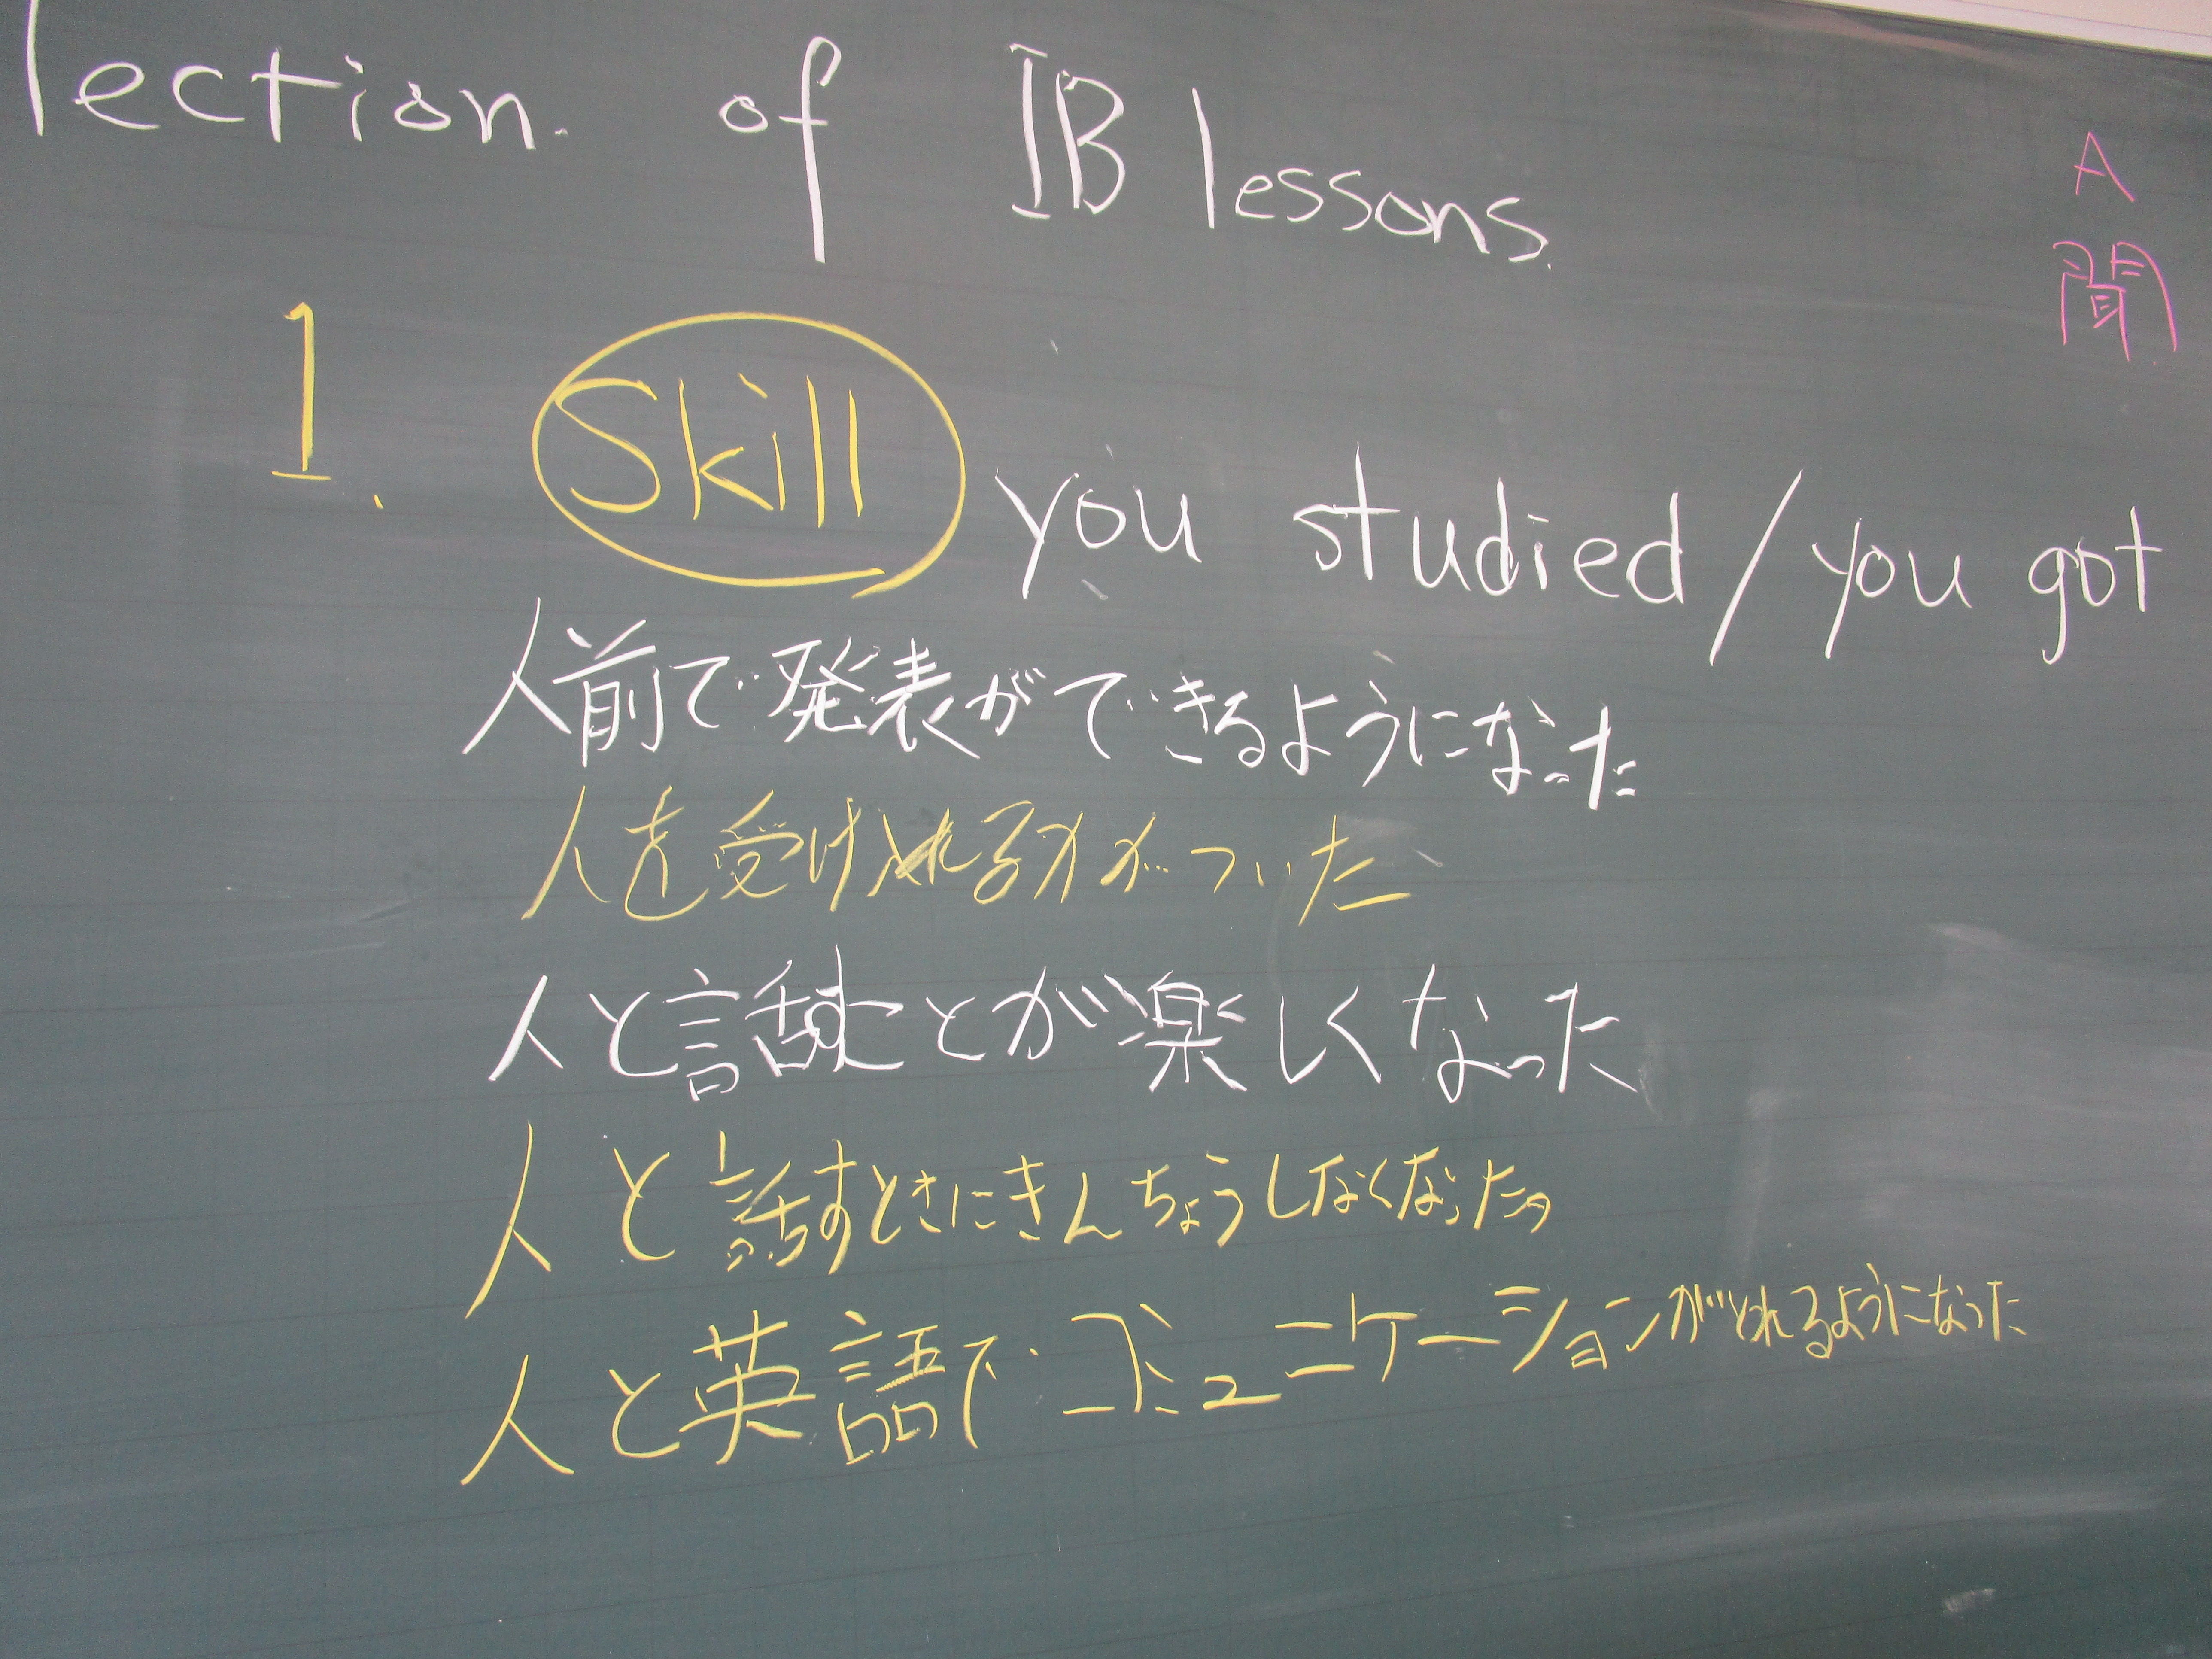 lection. of IB lessons.
A
聞
1. Skill you studied/you got
人前で発表ができるようになった
人を受け入れる力がついた
人と話すことが楽しくなった
人と話すときにきんちょうしなくなったっ
人と英語でコミュニケーションがとれるようになった